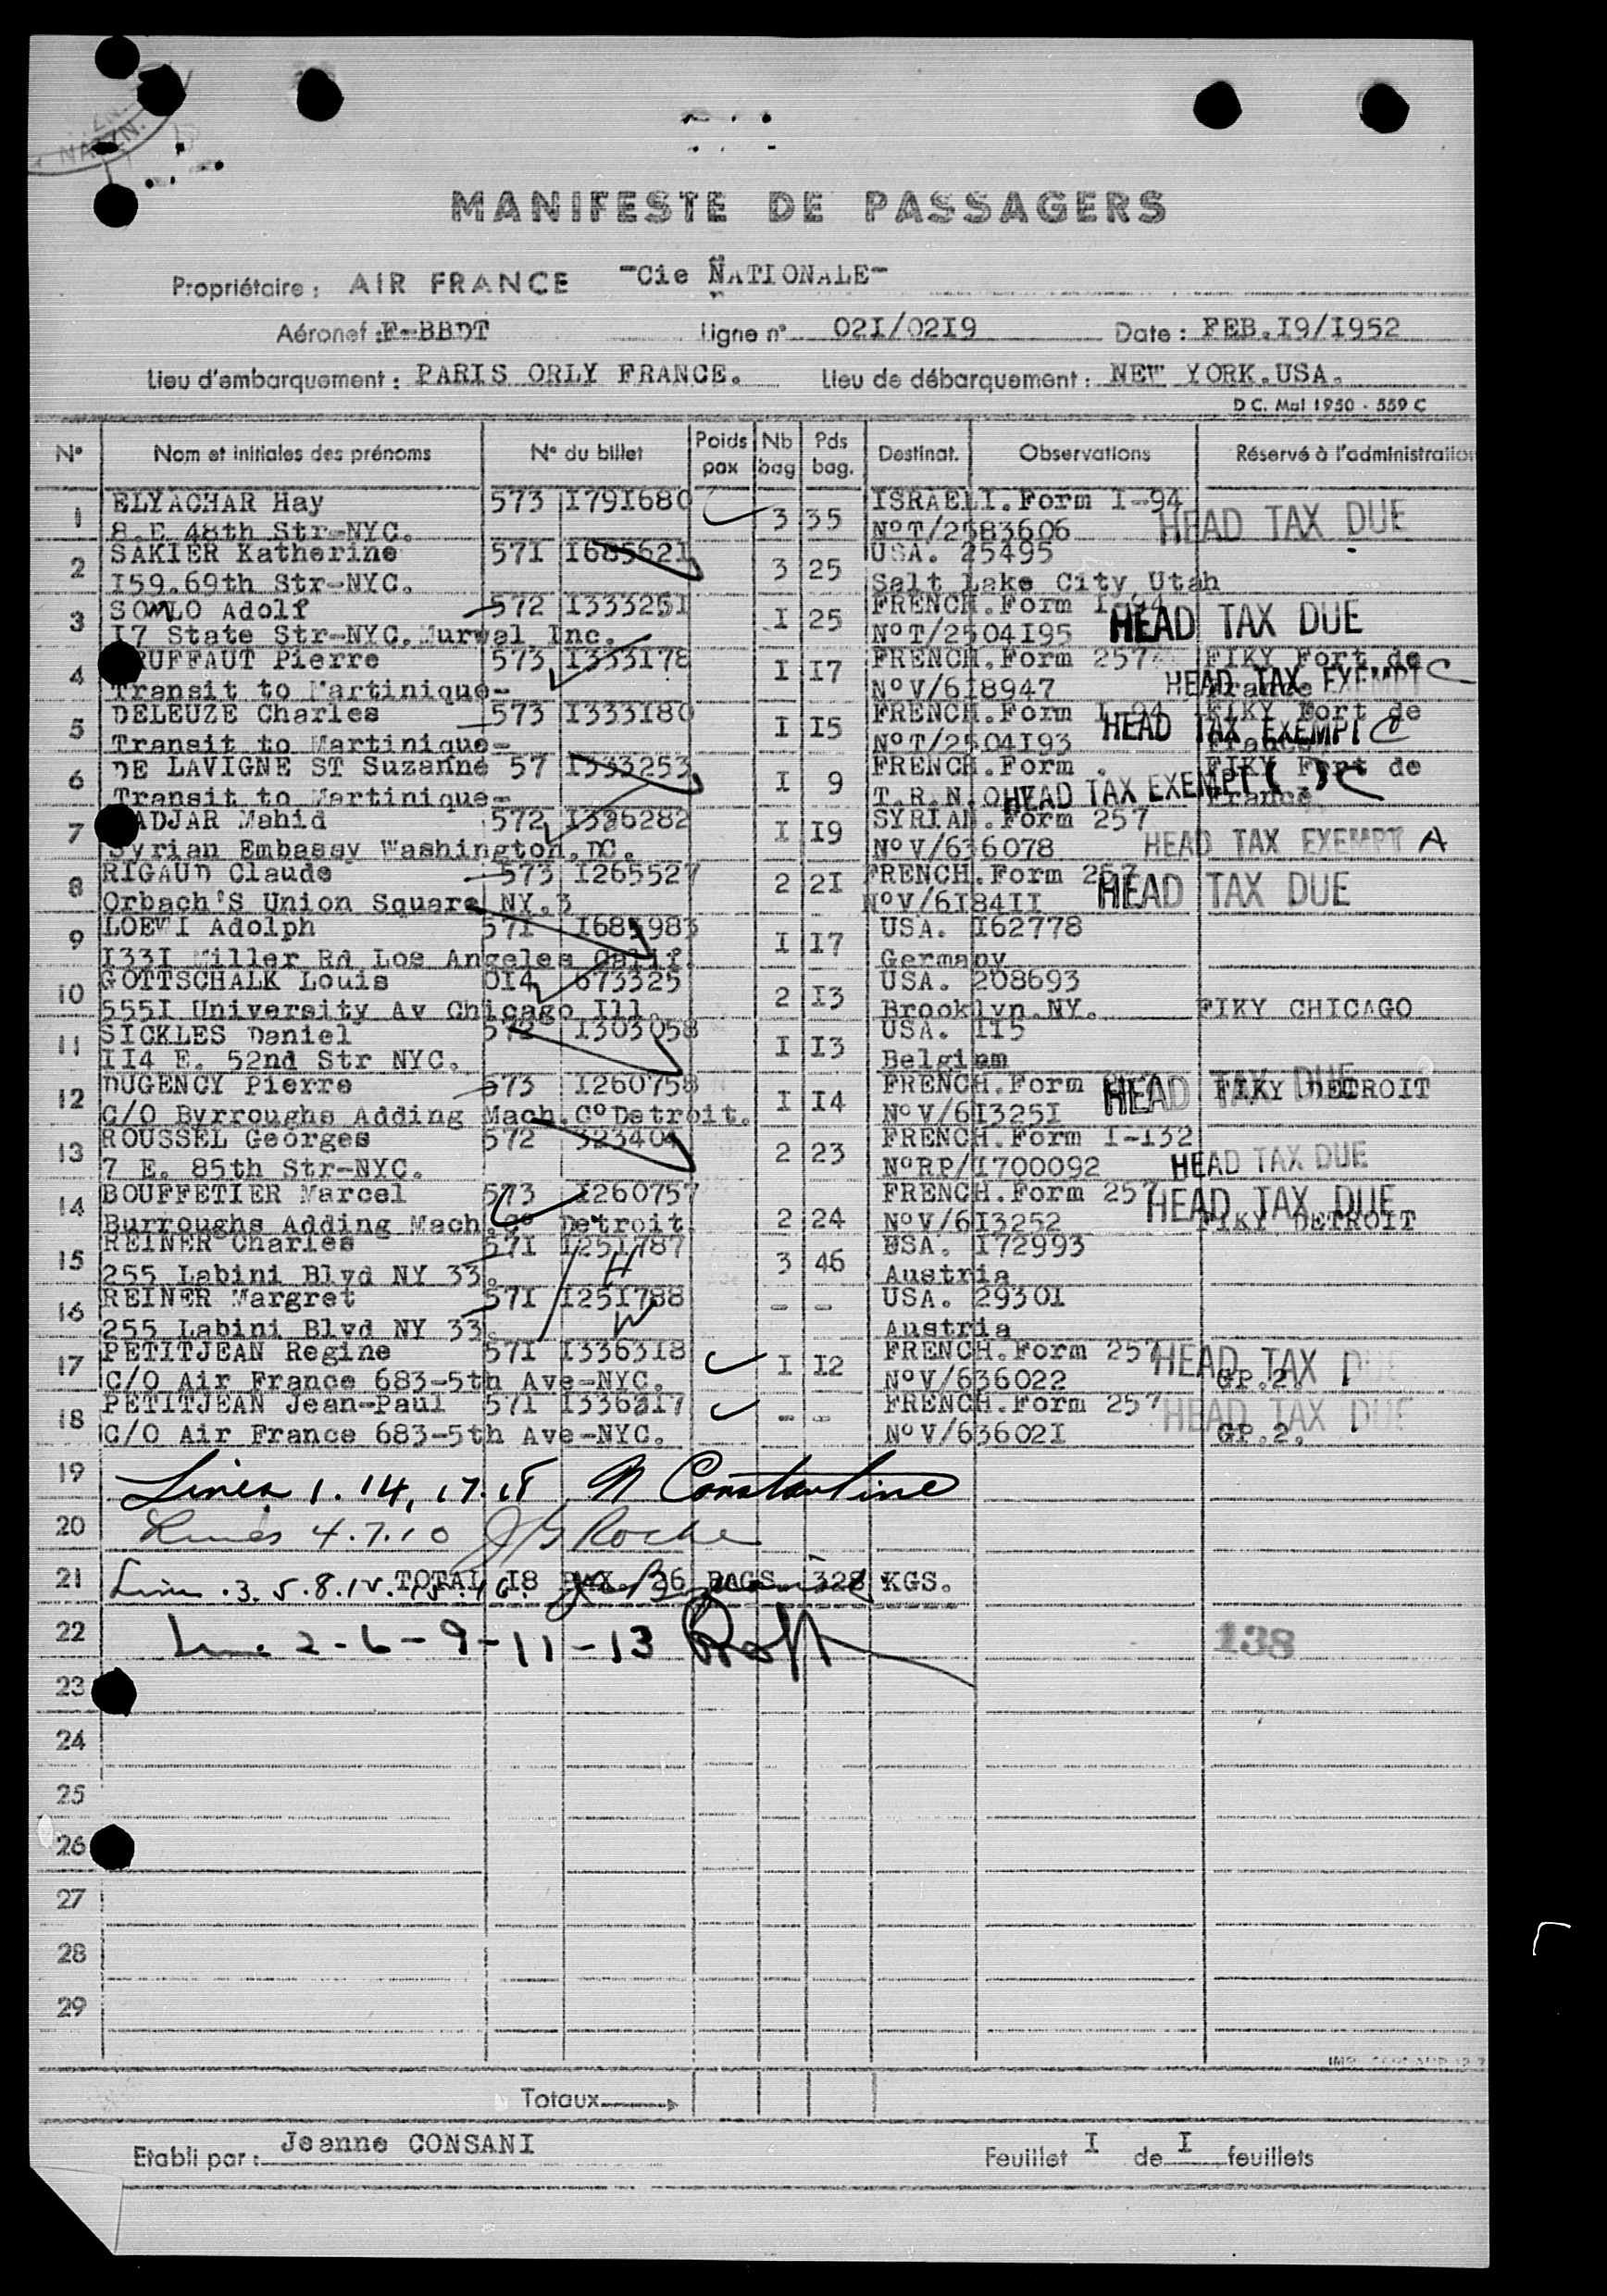 MANIFESTE DE PASSAGERS
Propriétaire : AIR FRANCE -Cie NATIONALE-
Aéronef : F-BBDT Ligne n° 02I/02I9 Date : FEB.I9/I952
Lieu d'embarquement : PARIS ORLY FRANCE. Lieu de débarquement : NEW YORK.USA.
D C. Mai 1950 - 559 C
N° Nom et initiales des prénoms N° du billet Poids pax Nb bag Pds bag. Destinat. Observations Réservé à l'administration
1 ELYACHAR Hay 573 I79I680 3 35 ISRAELI.Form I-94
8.E 48th Str-NYC. N°T/2583606 HEAD TAX DUE
2 SAKIER Katherine 57I I68562I 3 25 USA. 25495
I59.69th Str-NYC. Salt Lake City Utah
3 SOMLO Adolf 572 I33325I I 25 FRENCH.Form I-94
I7 State Str-NYC.Murwal Inc. N°T/2504I95 HEAD TAX DUE
4 RUFFAUT Pierre 573 I333I78 I I7 FRENCH.Form 257 FIKY Fort de
Transit to Martinique- N°V/6I8947 HEAD TAX EXEMPT C France
5 DELEUZE Charles 573 I333I80 I I5 FRENCH.Form I-94 FIKY Fort de
Transit to Martinique- N°T/2504I93 HEAD TAX EXEMPT C France
6 DE LAVIGNE ST Suzanne 57 I333253 I 9 FRENCH.Form . FIKY Fort de
Transit to Martinique- T.R.N.O HEAD TAX EXEMPT C France
7 ADJAR Mahid 572 I336282 I I9 SYRIAN.Form 257
Syrian Embassy Washington.DC. N°V/636078 HEAD TAX EXEMPT A
8 RIGAUD Claude 573 I265527 2 2I FRENCH.Form 257
Orbach'S Union Square NY.3 N°V/6I84II HEAD TAX DUE
9 LOEWI Adolph 57I I68I983 I I7 USA. I62778
I33I Miller Rd Los Angeles Calif. Germany
10 GOTTSCHALK Louis 0I4 673325 2 I3 USA. 208693
555I University Av Chicago Ill. Brooklyn.NY. FIKY CHICAGO
11 SICKLES Daniel 572 I303058 I I3 USA. II5
II4 E. 52nd Str NYC. Belgium
12 DUGENCY Pierre 573 I260758 I I4 FRENCH.Form HEAD TAX DUE FIKY DETROIT
C/O Byrroughs Adding Mach.C° Detroit. N°V/6I325I
13 ROUSSEL Georges 572 323404 2 23 FRENCH.Form I-I32
7 E. 85th Str-NYC. N°RP/I700092 HEAD TAX DUE
14 BOUFFETIER Marcel 573 I260757 2 24 FRENCH.Form 257 HEAD TAX DUE
Burroughs Adding Mach.C° Detroit. N°V/6I3252 FIKY DETROIT
15 REINER Charles 57I I25I787 H 3 46 USA. I72993
255 Labini Blvd NY 33. Austria
16 REINER Margret 57I I25I788 W - - USA. 2930I
255 Labini Blvd NY 33. Austria
17 PETITJEAN Regine 57I I3363I8 I I2 FRENCH.Form 257 HEAD TAX DUE
C/O Air France 683-5th Ave-NYC. N°V/636022 GP.2.
18 PETITJEAN Jean-Paul 57I I3363I7 - - FRENCH.Form 257 HEAD TAX DUE
C/O Air France 683-5th Ave-NYC. N°V/63602I GP.2.
19 Lines 1. 14, 17. 18 N Constantine
20 Lines 4.7.10 Roche
21 Lines .3.5.8.12.15.16. TOTAL I8 PAX. 26 BAGS. 328 KGS.
22 Line 2-6-9-11-13 138
23
24
25
26
27
28
29
Totaux
Etabli par : Jeanne CONSANI Feuillet I de I feuillets